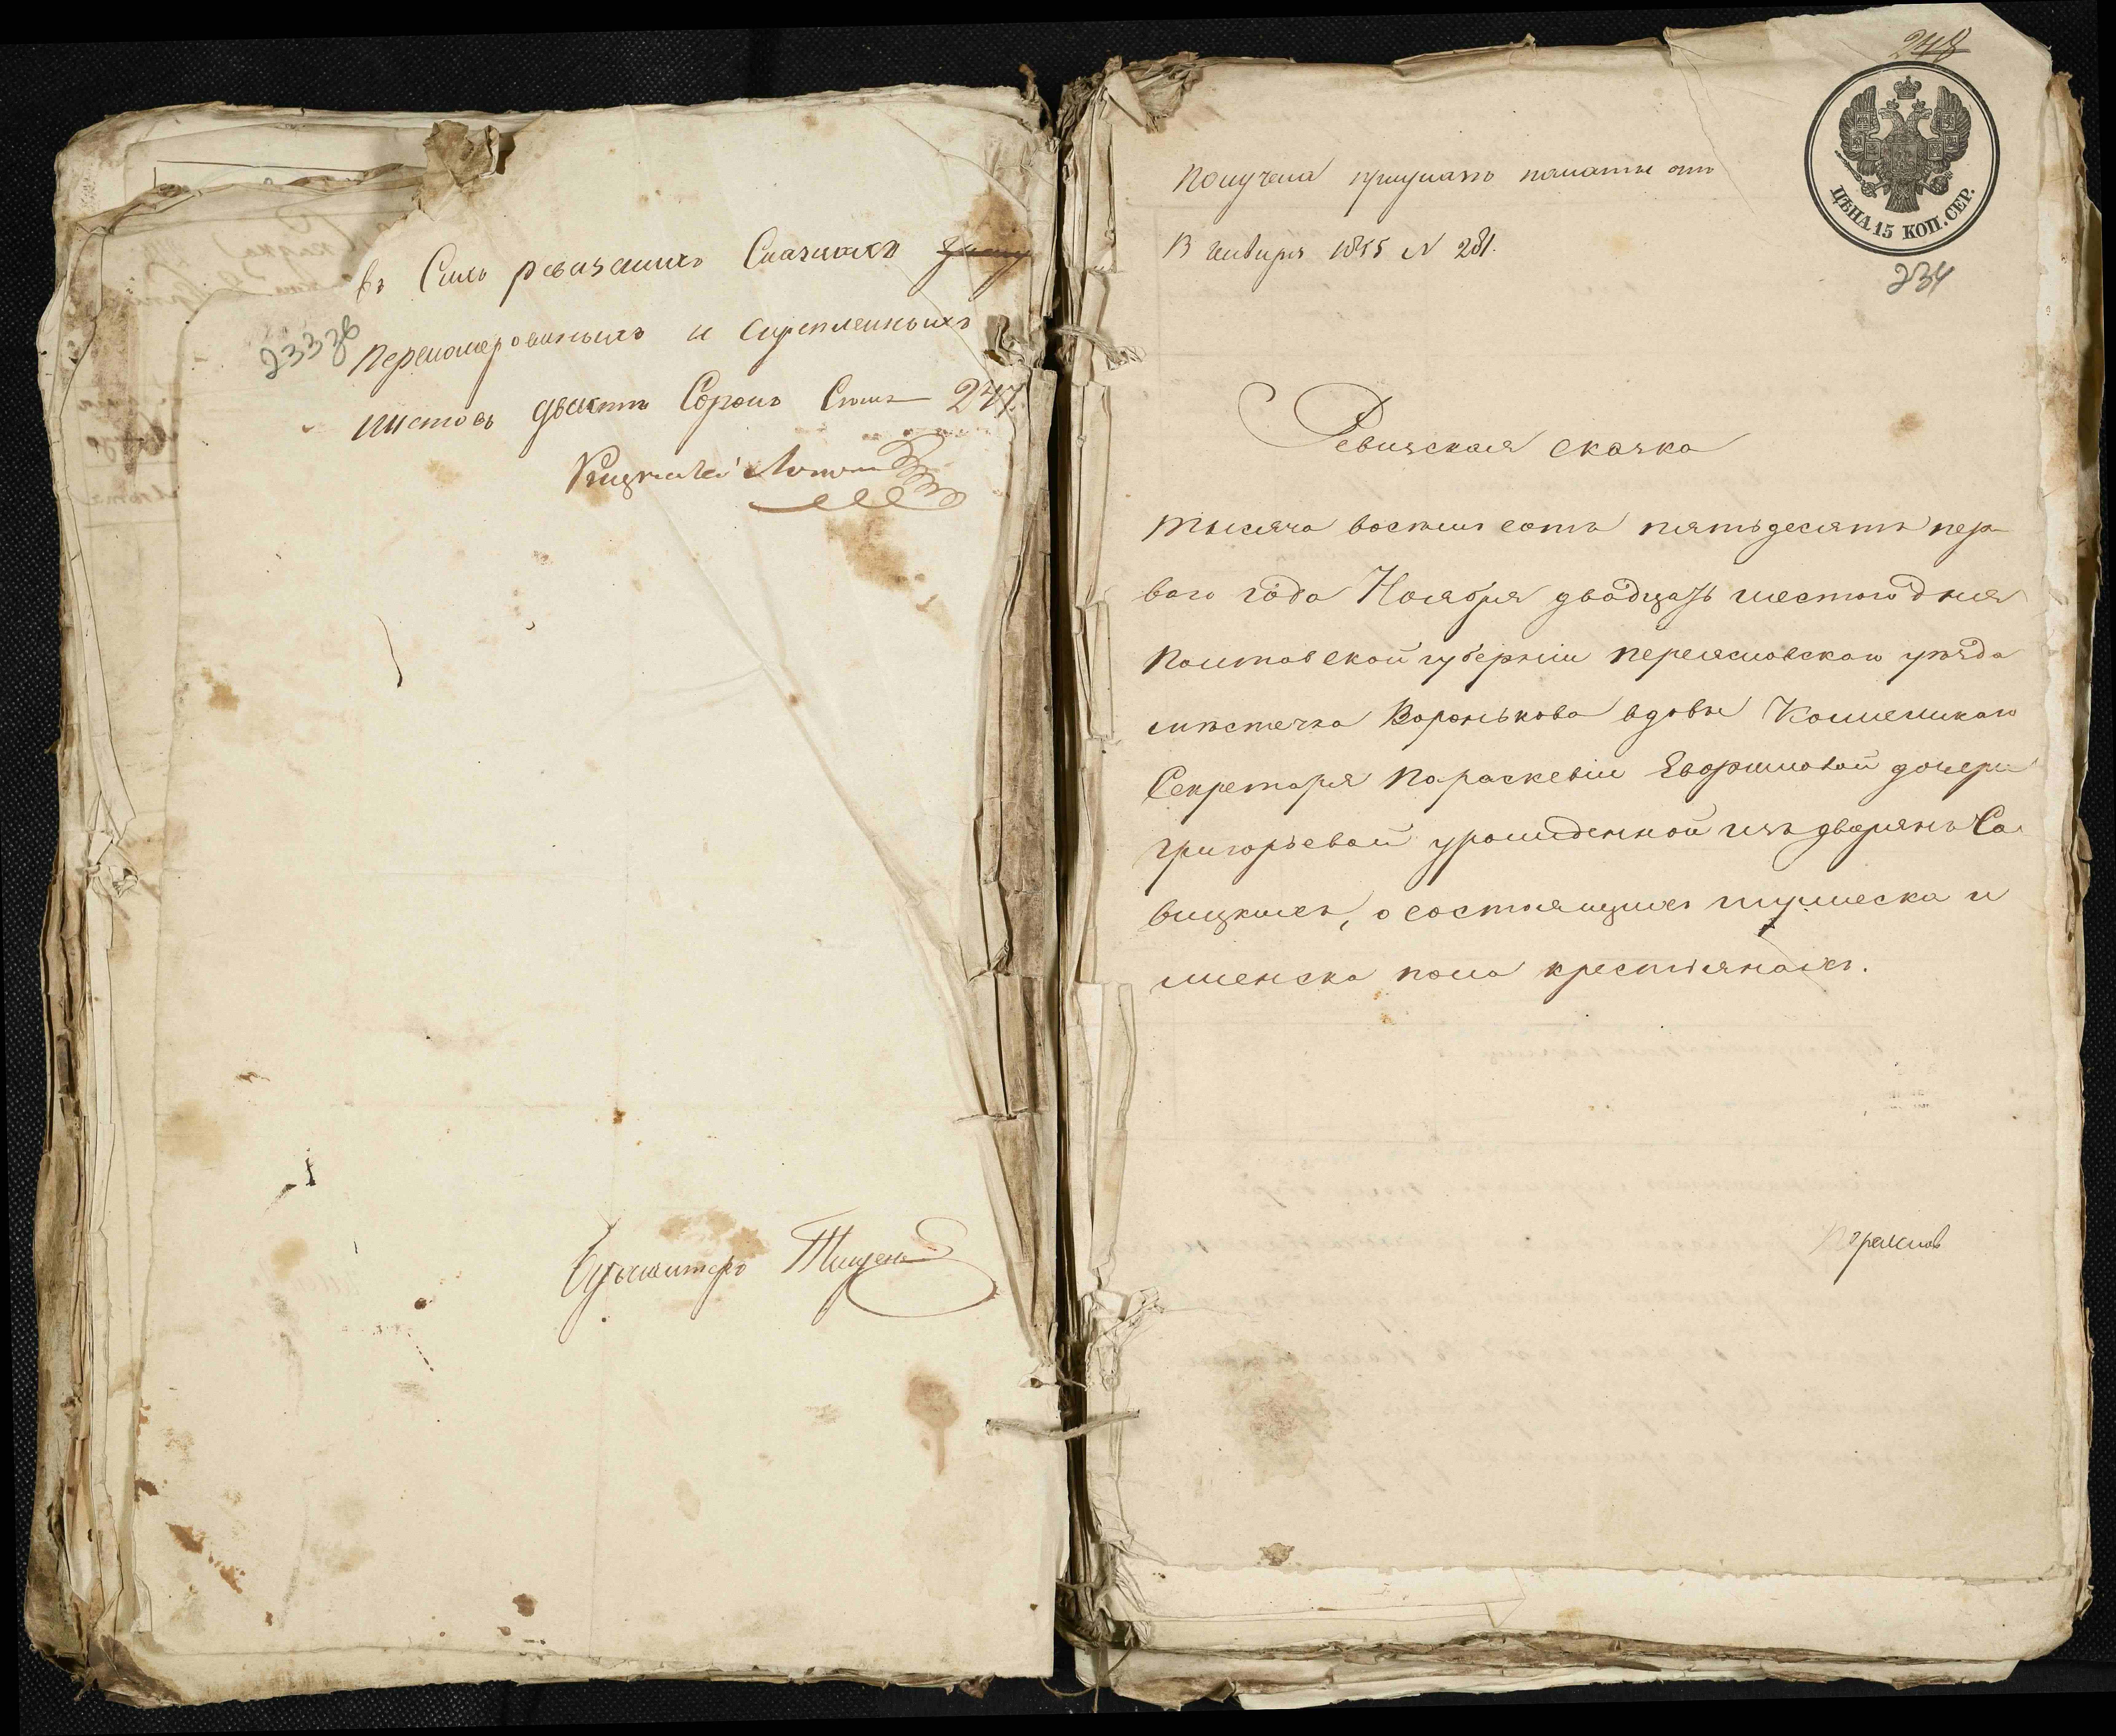 въ Сихъ ревизскихъ Сказкахъ
перенумерованныхъ и скрепленныхъ
листовъ двести Сорокъ Семъ 247.
233 зв
Бухгалтеръ
248
ЦѢНА 15 КОП. СЕР.
234
Получена при указе палаты отъ
13 Января 1855 N 281.
Ревизская сказка
тысяча восемь сотъ пятьдесятъ пер
ваго года Ноября двадцать шестого дня
Полтавской губерніи переяславскаго уезда
местечка Воронькова вдовы Колежскаго
Секретаря Параскевіи Евфимовой дочери
григорьевой урожденной изъ дворянъ Са
вицкихъ, о состоящихъ мужеска и
женска пола крестьянахъ.